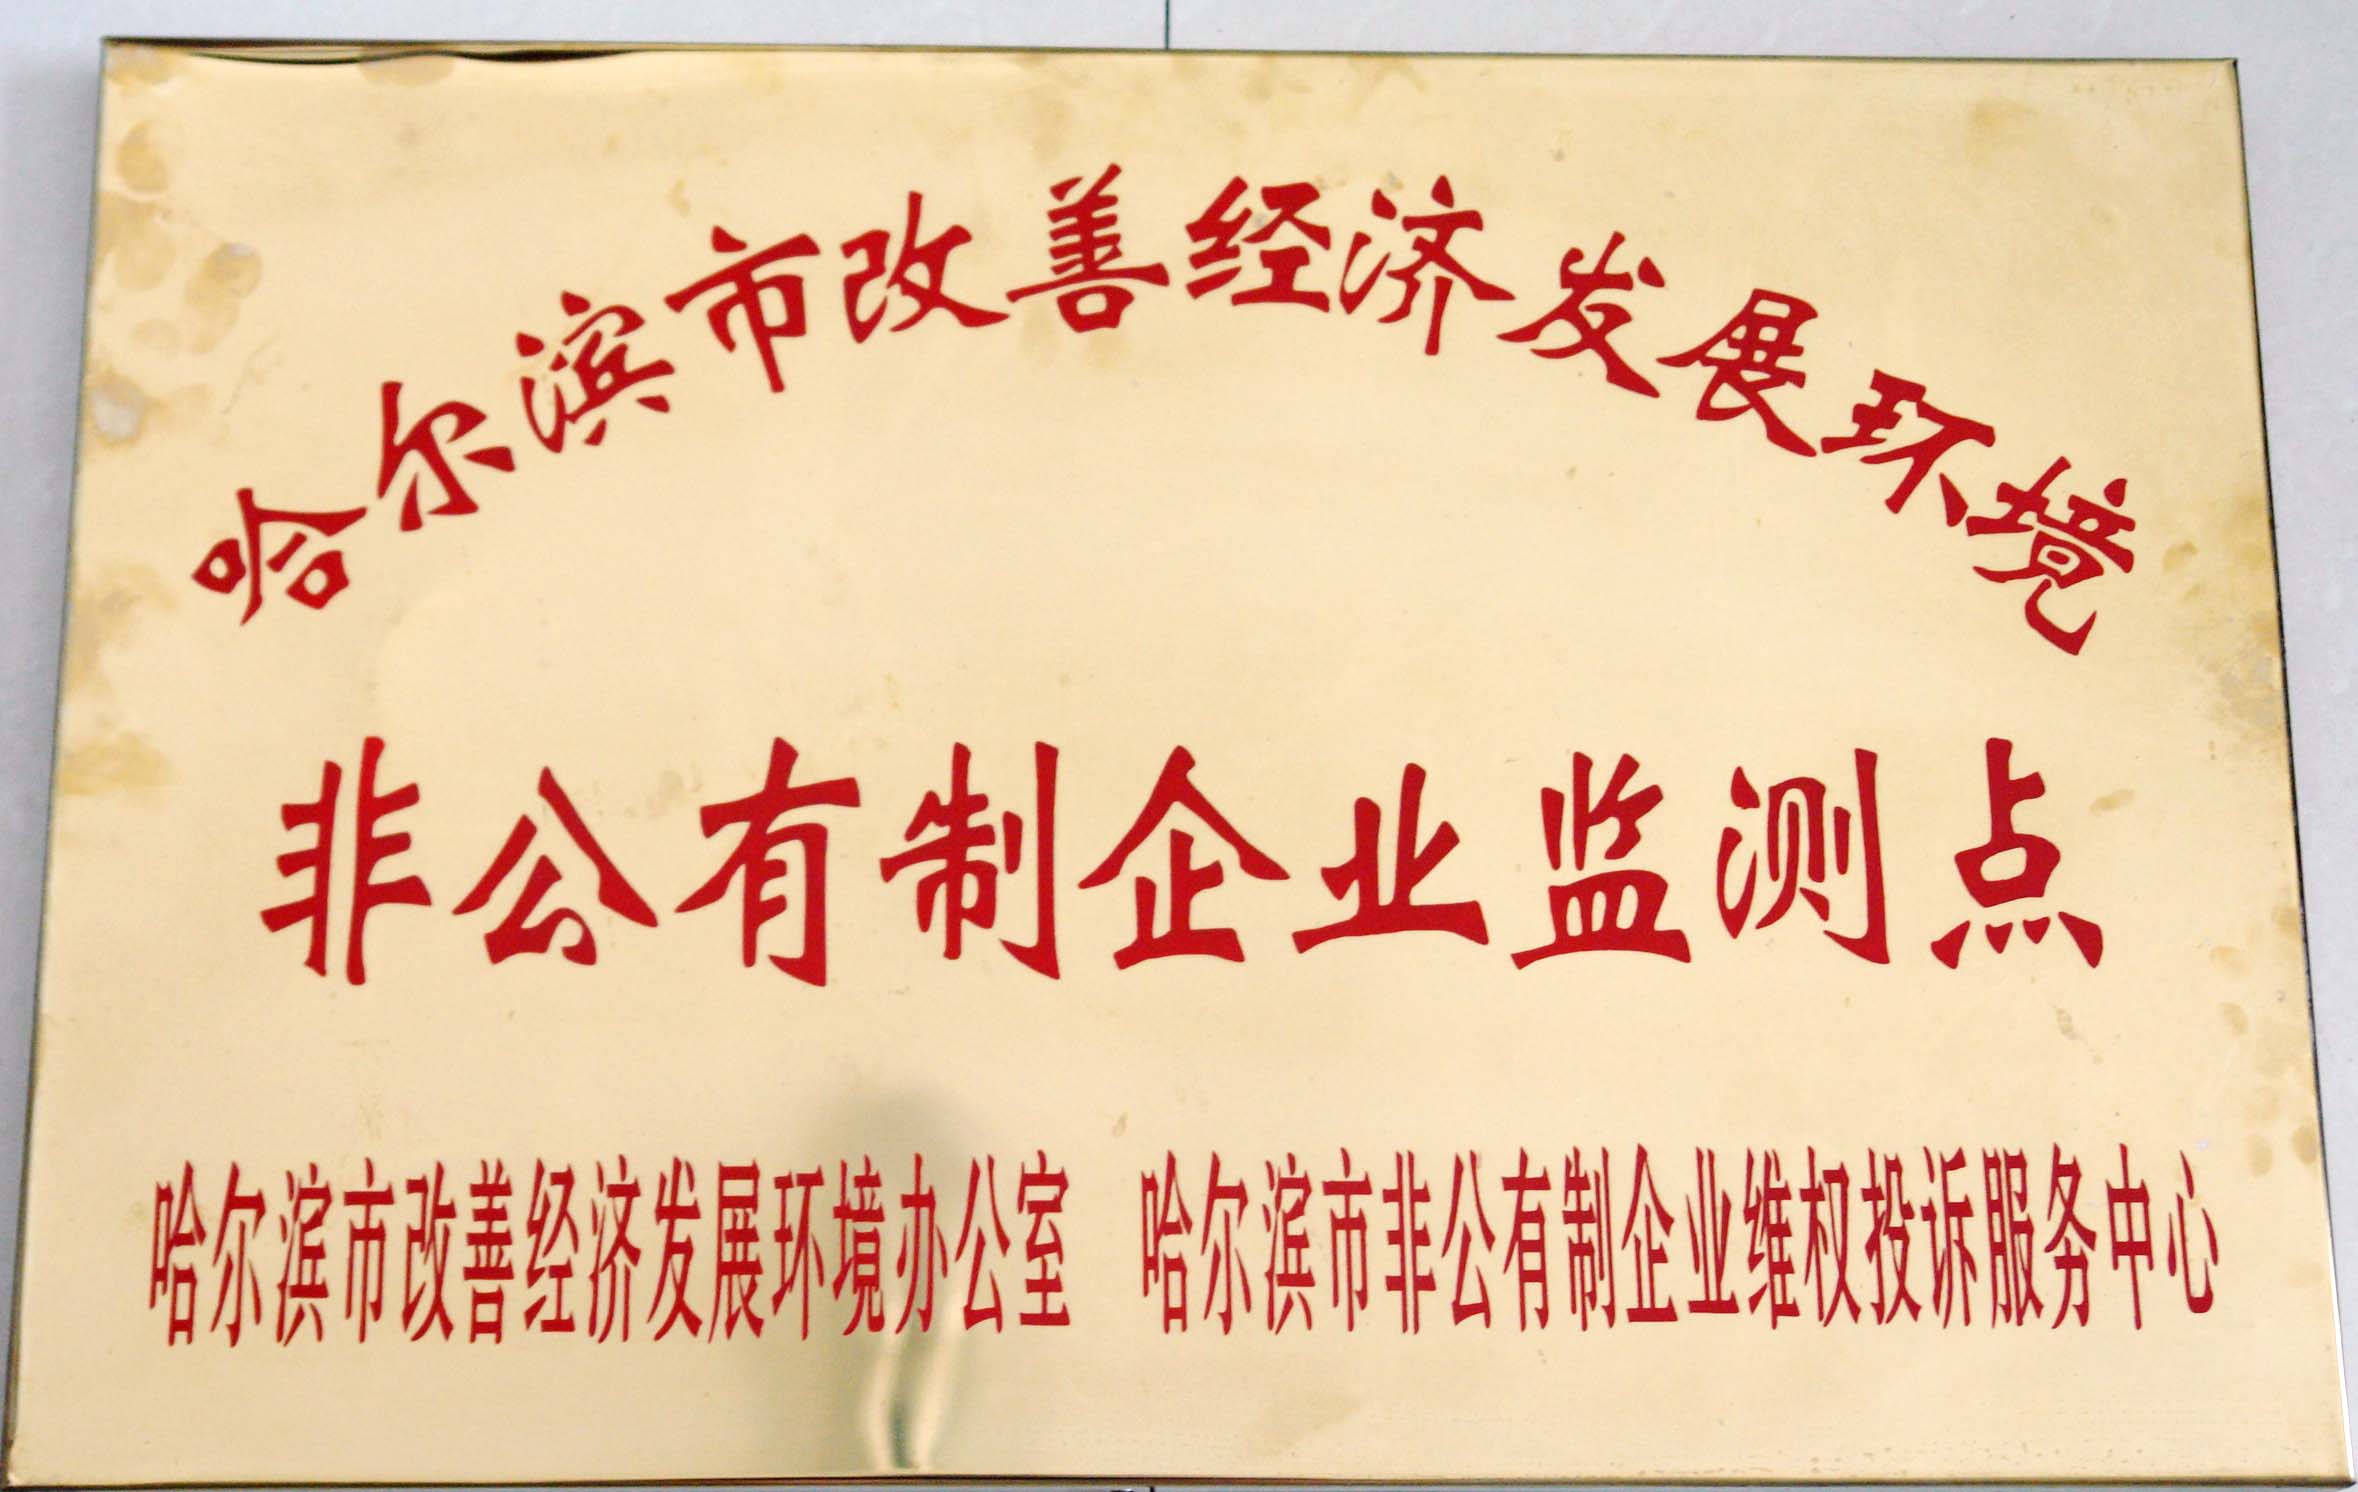 哈尔滨市改善经济发展环境
非公有制企业监测点
哈尔滨市改善经济发展环境办公室 哈尔滨市非公有制企业维权投诉服务中心